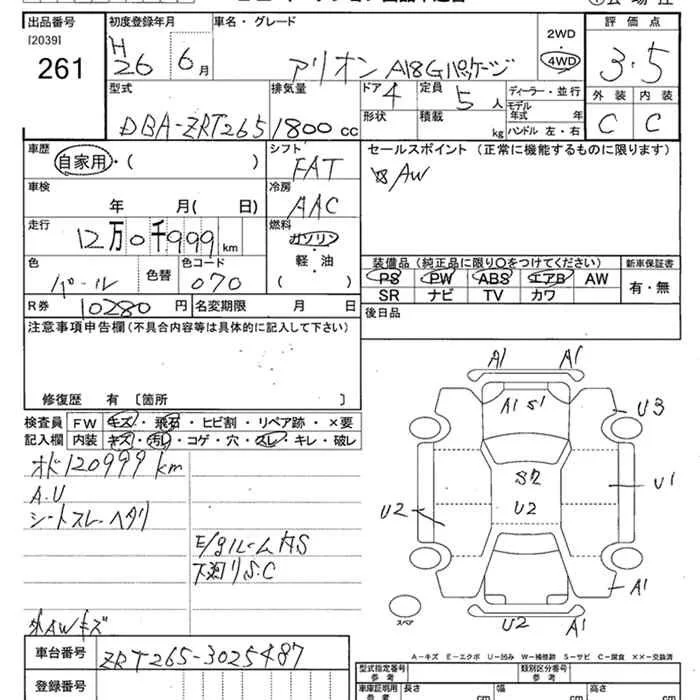 出品番号 初度登録年月 車名・グレード 評価点
[2039]
261
H26 6月 アリオン A18Gパッケージ 2WD 4WD 3.5
型式 排気量 ドア 定員 ディーラー・並行 外装 内装
DBA-ZRT265 1800cc 4 5人 モデル年式 年 C C
形状 積載 kg ハンドル 左・右
車歴 シフト セールスポイント(正常に機能するものに限ります)
自家用・( ) FAT
AW
車検 冷房
年 月( 日) AAC
走行 燃料
12万0千999km ガソリン
軽・油
( )
色 色替 色コード 装備品(純正品に限り○をつけてください) 新車保証書
パール 070 PS PW ABS エアB AW 有・無
SR ナビ TV カワ
R券 10280円 名変期限 月 日 後日品
注意事項申告欄(不具合内容等は具体的に記入して下さい)
修復歴 有 [箇所 ]
検査員 FW キズ・飛石・ヒビ割・リペア跡・×要
記入欄 内装 キズ・汚れ・コゲ・穴・スレ・キレ・破レ
オド120999km
A.U
シートスレ・ヘタリ
E/gルームAS
下廻りS.C
外AWキズ
A1 A1
A1 S1
U3
S2
U2
U1
U2
A1
U2 A1
スペア
A-キズ E-エクボ U-凹み W-補修跡 S-サビ C-腐食 ××-交換済
車台番号 ZRT265-3025487
登録番号
型式指定番号 参考 類別区分番号 参考
車庫証明用 参考 長さ cm 幅 cm 高さ cm